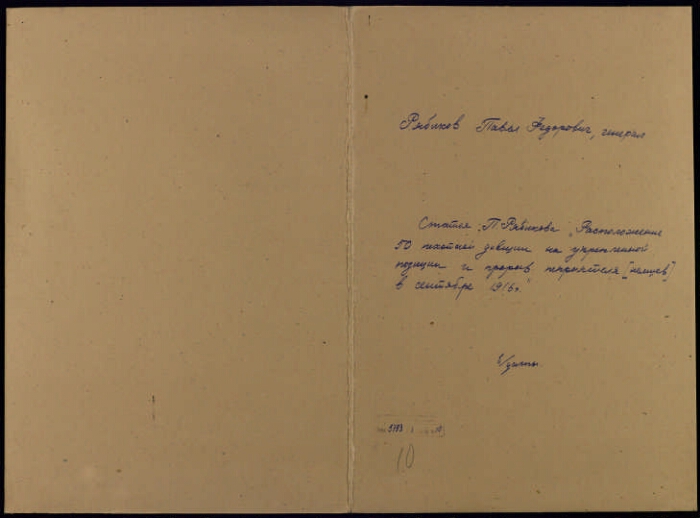 Рябиков Павел Федорович, генерал
Статья П. Рябикова „Расположение
50 пехотной дивизии на укрепленной
позиции и прорыв неприятеля [немцев]
в сентябре 1916г."
б/даты.
10